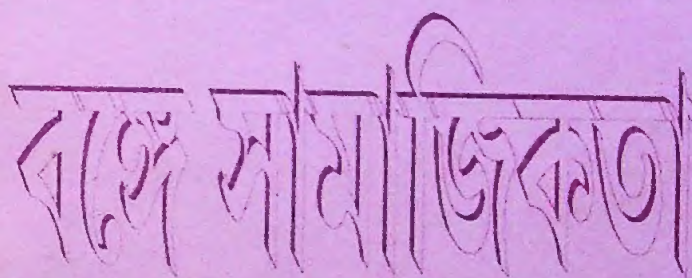 বঙ্গে সামাজিকতা